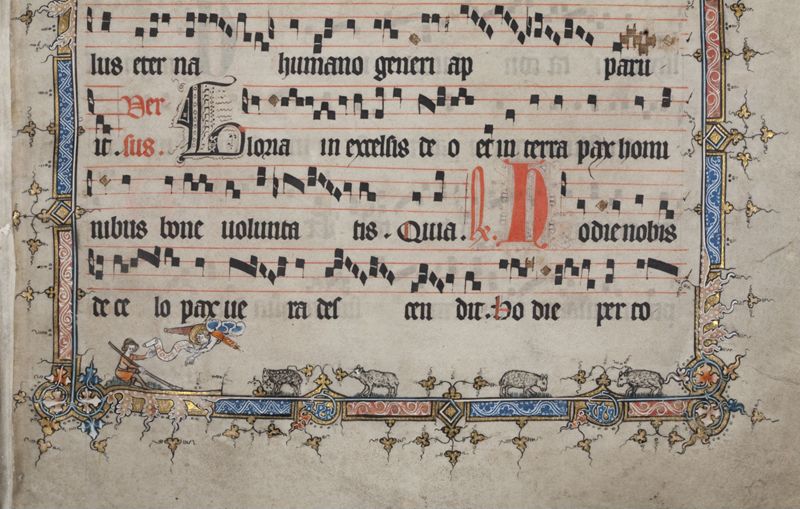 lus eter na humano generi ap paru
it. Ver sus. Gloria in excelsis de o et in terra pax homi
nibus bone volunta tis. Quia. R. Hodie nobis
de ce lo pax ve ra des cen dit. Ho die per to